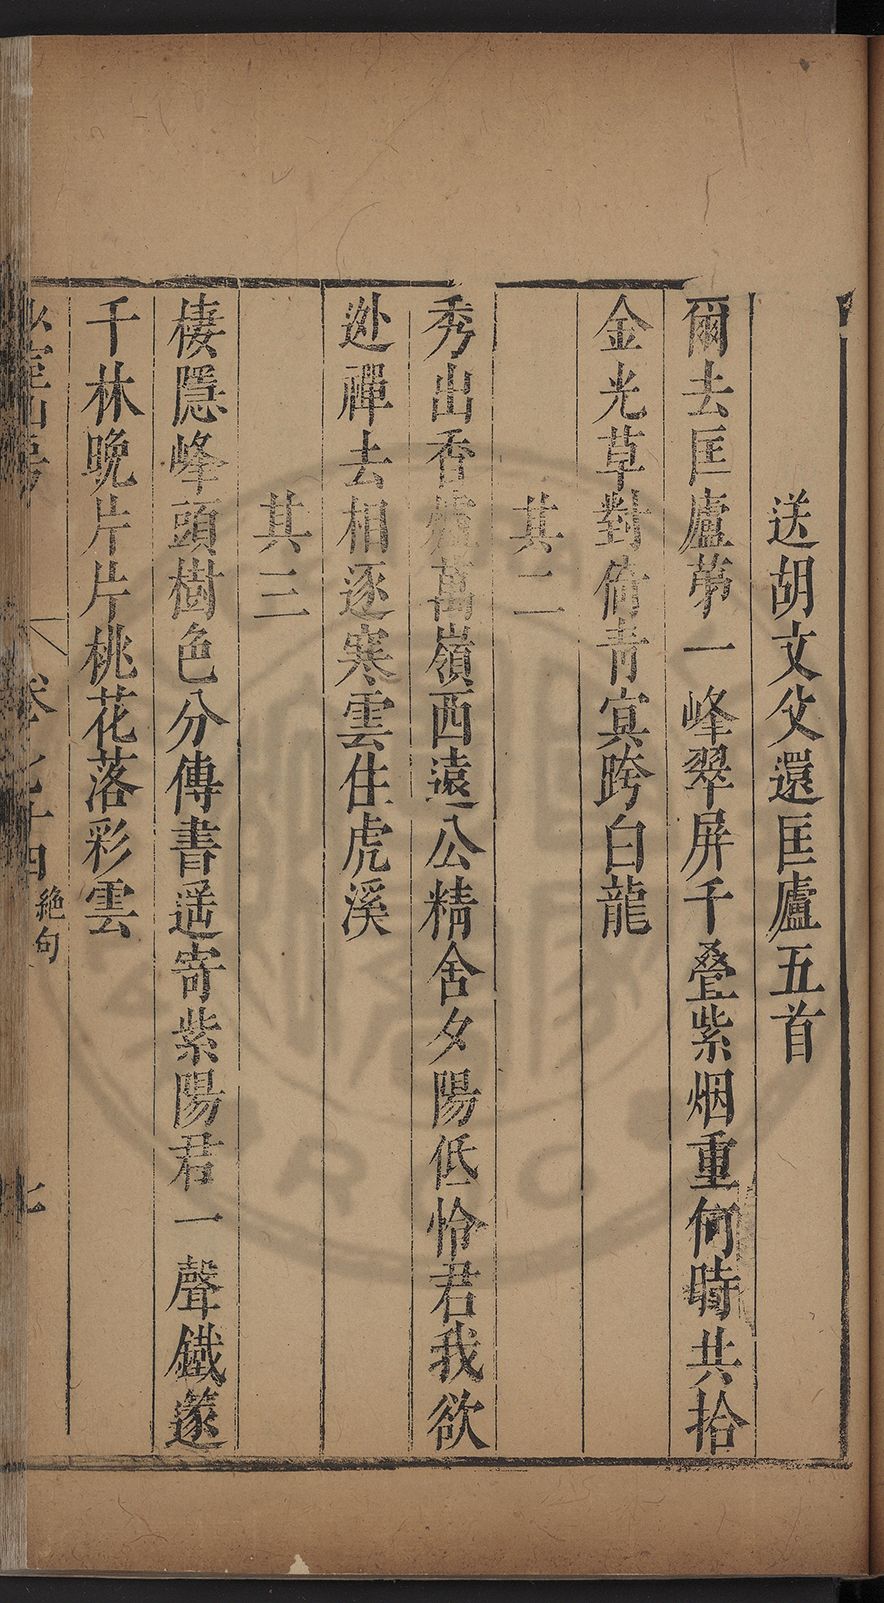 送胡文父還匡廬五首
爾去匡廬第一峰翠屏千疊紫烟重何時共拾
金光草對倚青冥跨白龍
其二
秀出香爐萬嶺西遠公精舍夕陽低怜君我欲
逃禪去相逐寒雲住虎溪
其三
棲隱峰頭樹色分傳書遥寄紫陽君一聲鐵篴
千林晚片片桃花落彩雲
山房
卷之十四 絶句
七